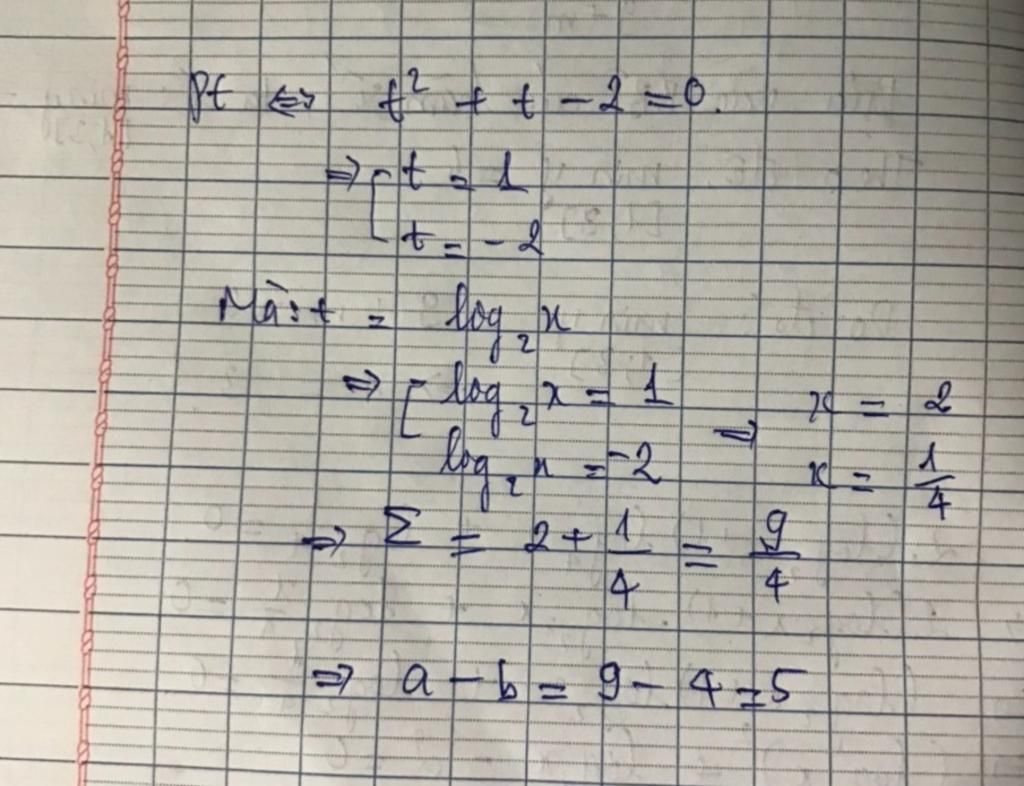 Pt ⇔ t² + t - 2 = 0.
⇒ [ t = 1
t = - 2
Mà: t = log₂ x
⇒ [ log₂ x = 1 ⇒ x = 2
log₂ x = -2 x = 1/4
⇒ Σ = 2 + 1/4 = 9/4
⇒ a - b = 9 - 4 = 5